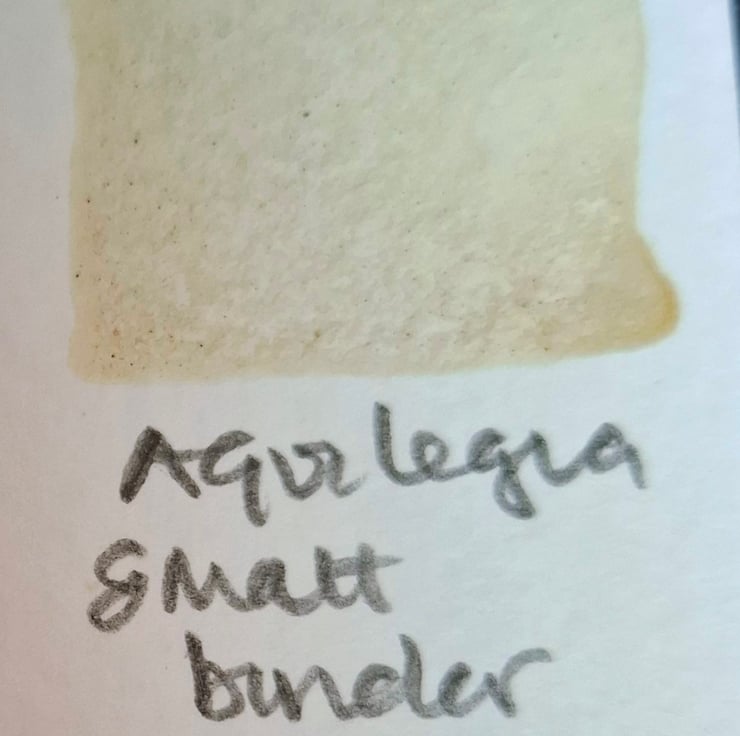 Aquilegia
& Matt
binder